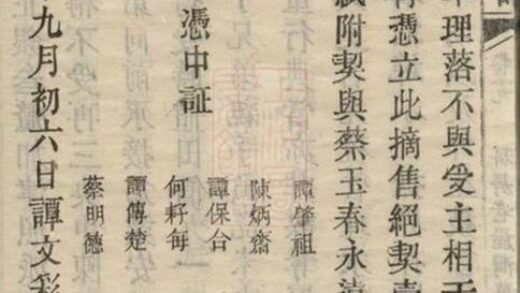 理落不與受主相干
憑立此摘售絕契壹
附契與蔡玉春永遠
譚肇祖
陳炳齋
譚保台
憑中証
何籽每
譚傳楚
蔡明德
九月初六日譚文彩